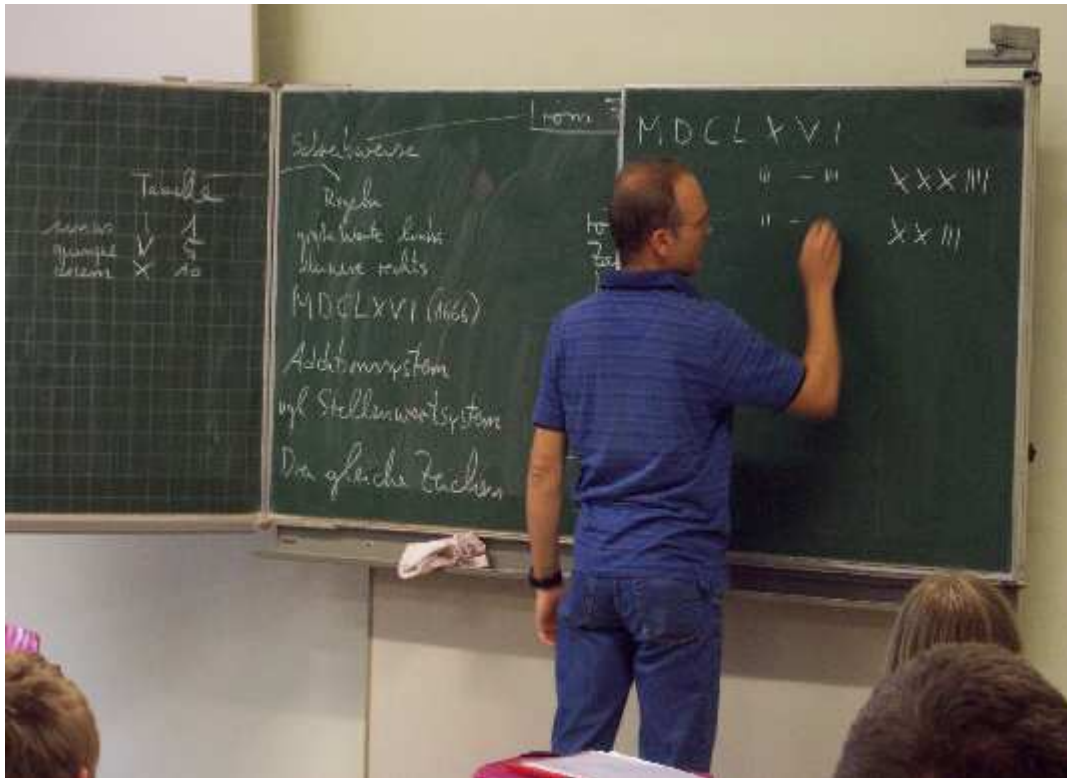 Tabelle
unus I 1
quinque V 5
decem X 10
Schreibweise
Regeln
größte Werte links
kleinere rechts
MDCLXVI (1666)
Additionssystem
vgl Stellenwertsystem
Drei gleiche Zeichen
1 röm
MDCLXVI
III – III XXXIII
II – XXIII